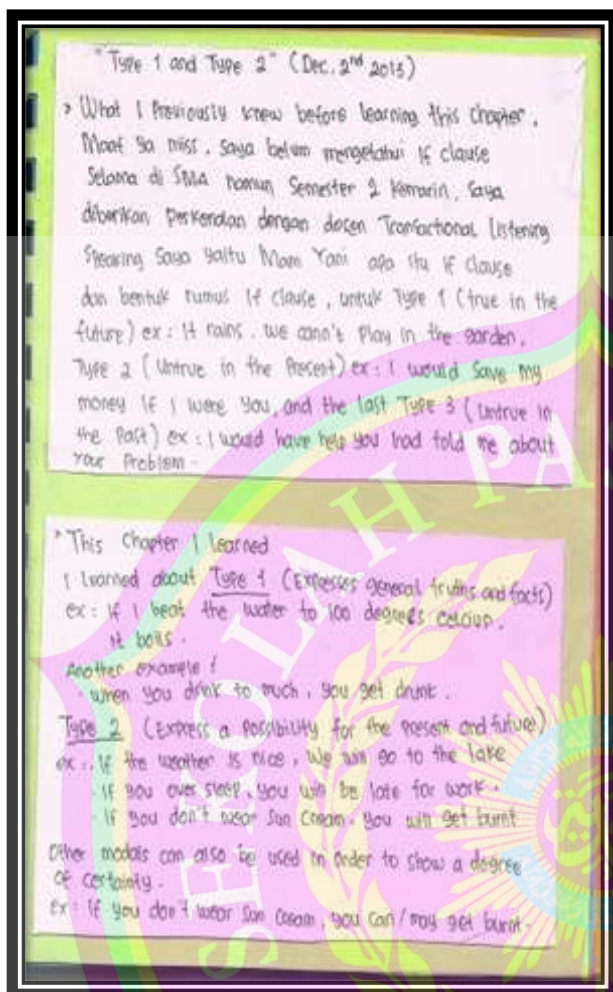 "Type 1 and Type 2" (Dec. 2nd 2015)
> What I Previously knew before learning this chapter.
Maaf ya miss, saya belum mengetahui If clause
Selama di SMA namun Semester 2 kemarin, saya
diberikan perkenalan dengan dosen Transactional Listening
Speaking Saya yaitu Mam Yani apa itu If clause
dan bentuk rumus If clause, untuk Type 1 (true in the
future) ex: It rains. we cann't play in the garden.
Type 2 (Untrue in the Present) ex: I would save my
money If I were you, and the last Type 3 (Untrue in
the Past) ex: I would have help you had told me about
your Problem.
> This Chapter I learned
I learned about Type 1 (Expresses general truths and facts)
ex: If I heat the water to 100 degrees
It boils.
Another example :
- when you drink to much, you get drunk.
Type 2 (Express a Possibility for the present and future)
ex: . If the weather is nice, We will go to the lake
. If you over sleep, you will be late for work.
. If you don't wear Sun Cream, you will get burnt
Other modals can also be used in order to show a degree
of certainty.
ex: If you don't wear Sun Cream, you can/may get burnt.
SEKOLAH PAS